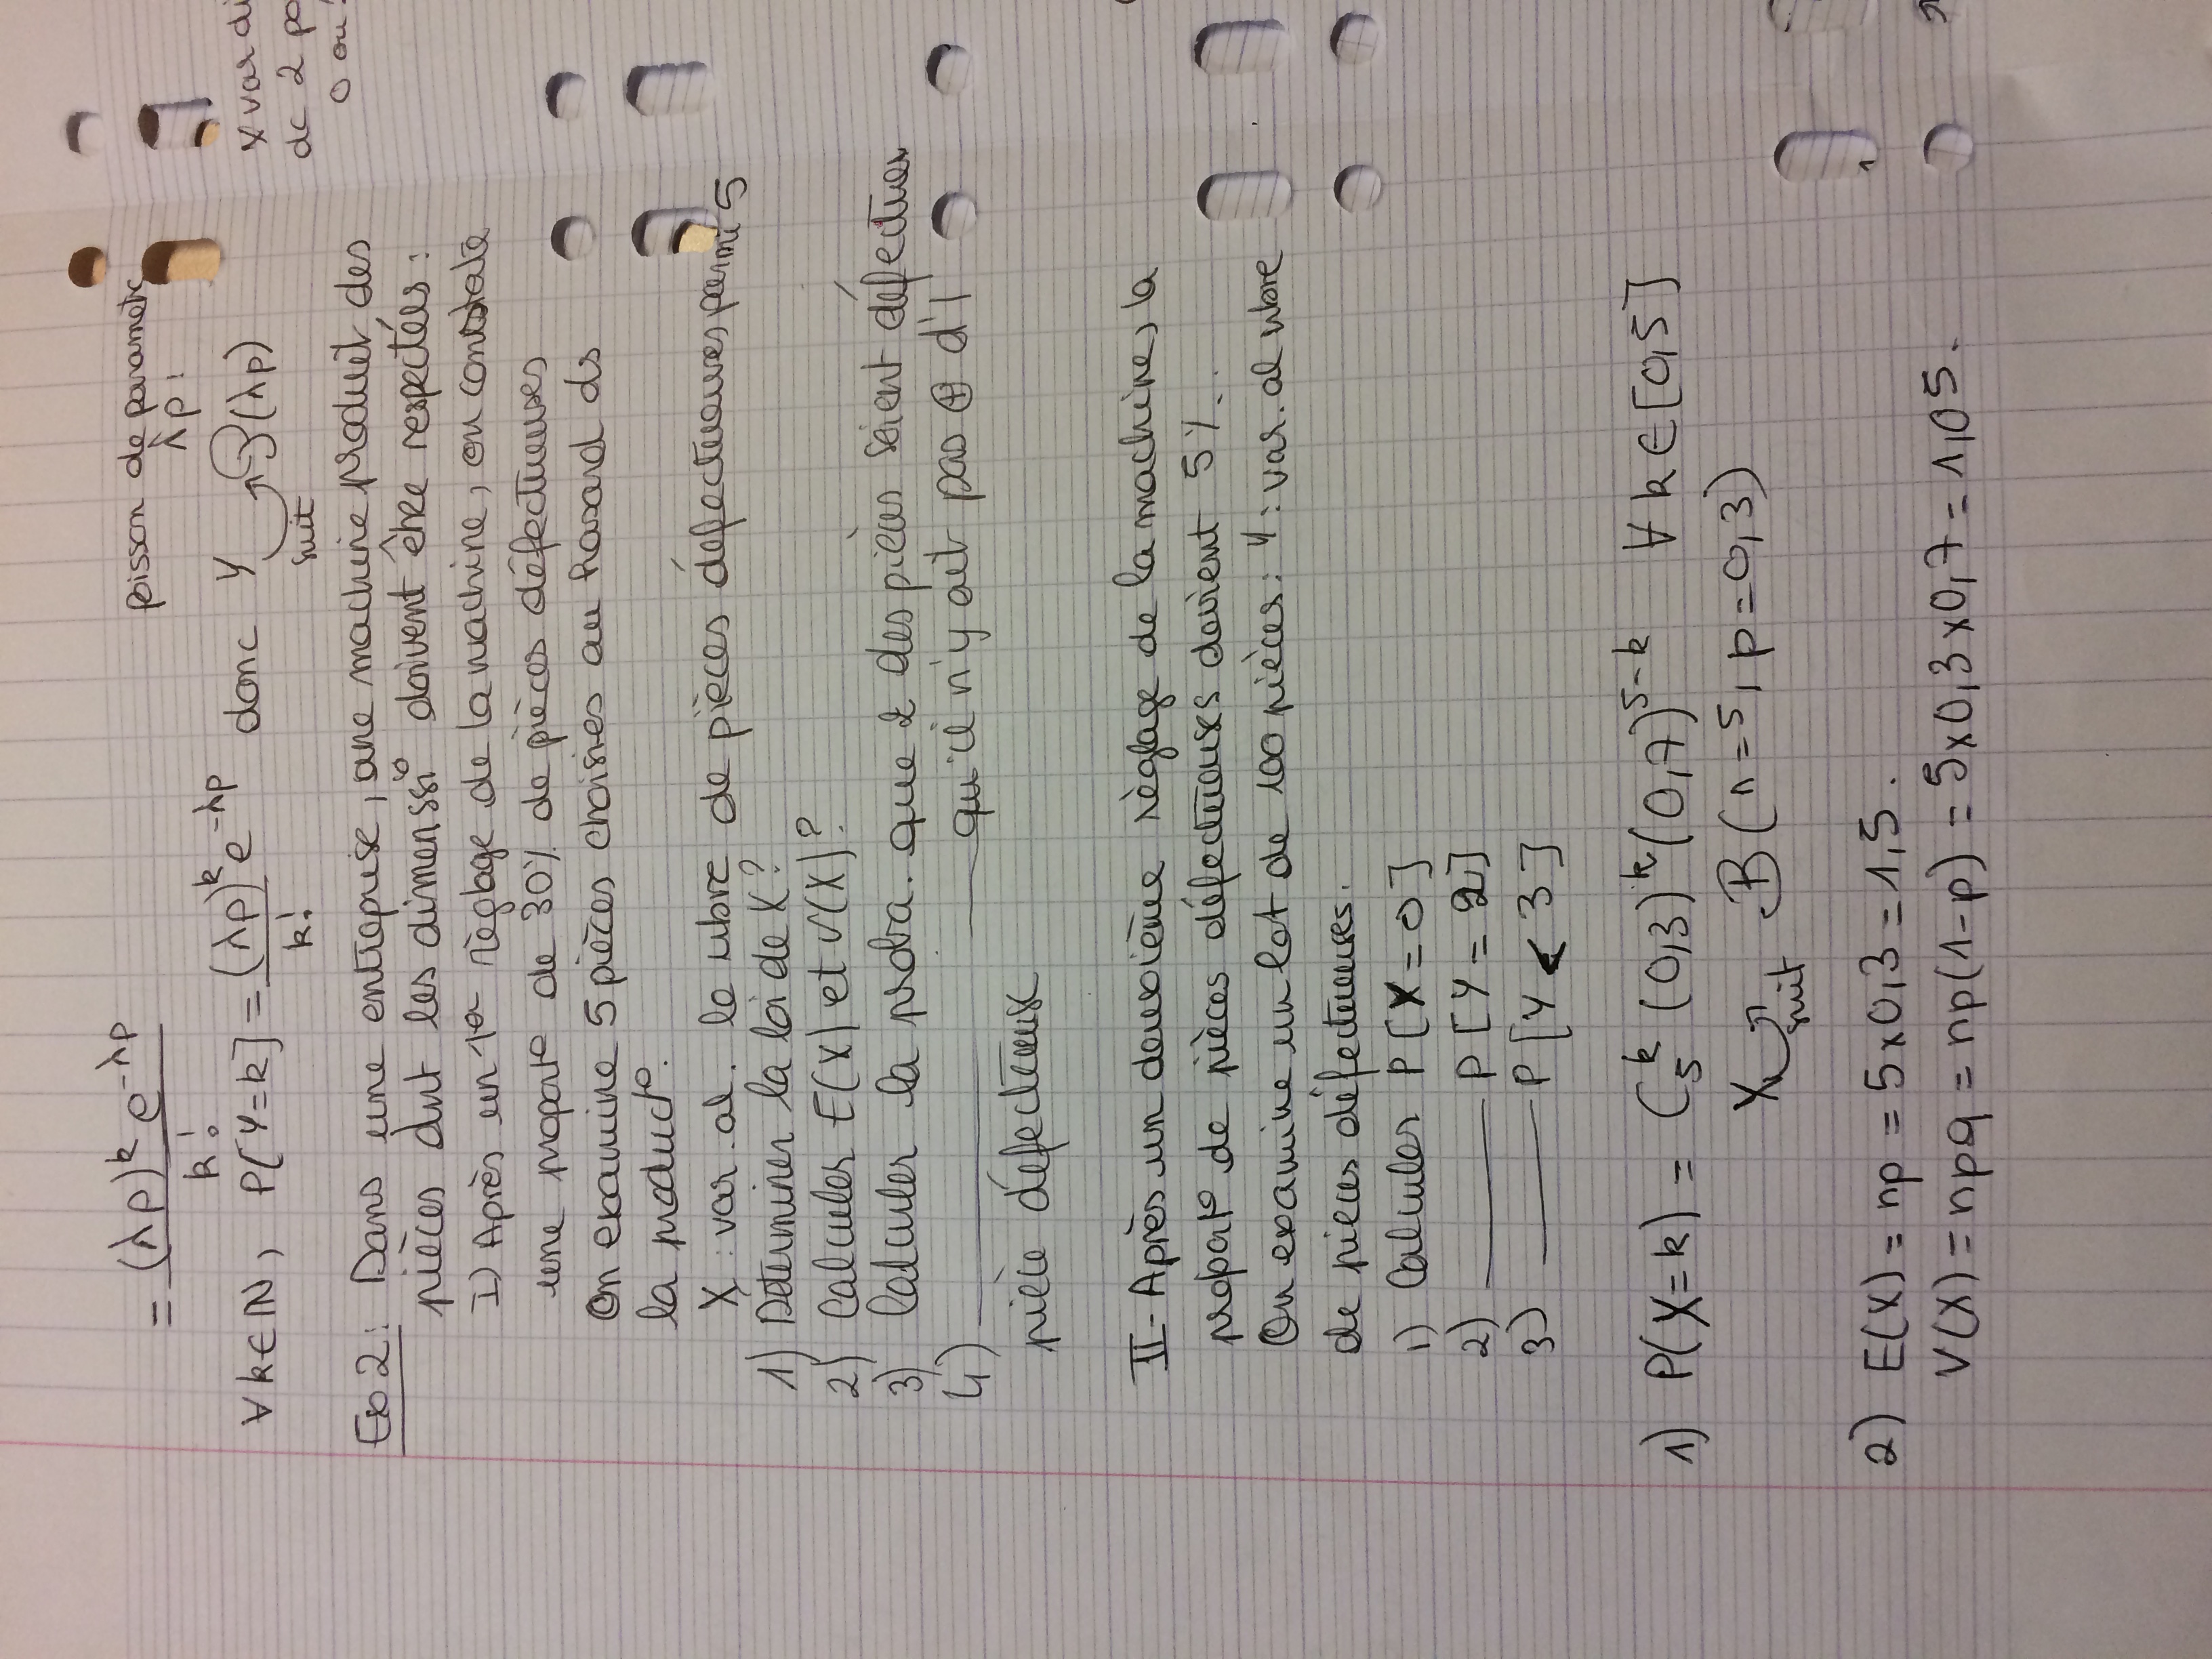 = (λp)^k e^-λp / k!
poisson de parametre
λp !
∀ k ∈ ℕ, P[Y=k] = (λp)^k e^-λp / k! donc Y suit P(λp)
X var di
dc 2 po
0 ou
Exo 2 : Dans une entreprise, une machine produit des
pièces dont les dimenssi° doivent être respectées :
I) Après un 1er règlage de la machine, on constate
une proport° de 30% de pièces défectueuses
On examine 5 pièces choisies au hasard ds
la product°.
X : var. al. le nbre de pièces défectueuses parmi 5
1) Déterminer la loi de X ?
2) Calculer E(X) et V(X) ?
3) Calculer la proba. que 2 des pièces soient défectueu
4) ——— ——— qu'il n'y ait pas ⊕ d'1
pièce défectueuse
II - Après un deuxième règlage de la machine, la
proport° de pièces défectueuses devient 5%.
On examine un lot de 100 pièces : Y : var. al nbre
de pièces défectueuses.
1) Calculer P[Y=0]
2) ——— P[Y=2]
3) ——— P[Y<3]
1) P(X=k) = C_5^k (0,3)^k (0,7)^5-k ∀ k ∈ [0,5]
X suit B(n=5, p=0,3)
2) E(X) = np = 5x0,3 = 1,5.
V(X) = npq = np(1-p) = 5x0,3x0,7 = 1,05.